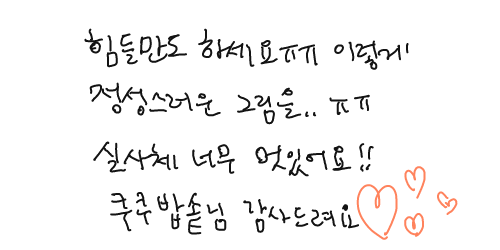 힘들만도 하세요ㅠㅠ 이렇게
정성스러운 그림을.. ㅠㅠ
실사체 너무 멋있어요!!
쿠쿠밥솥님 감사드려요